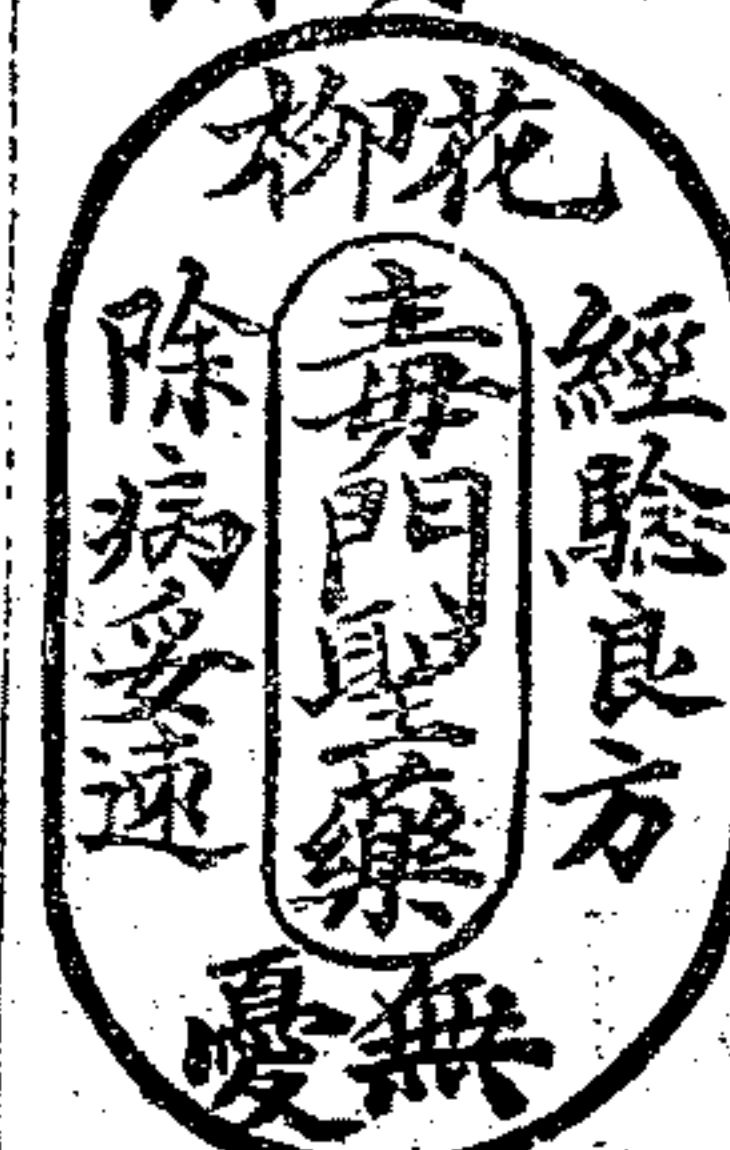 花柳
經驗良方
毒門聖藥
除病妥速
無憂